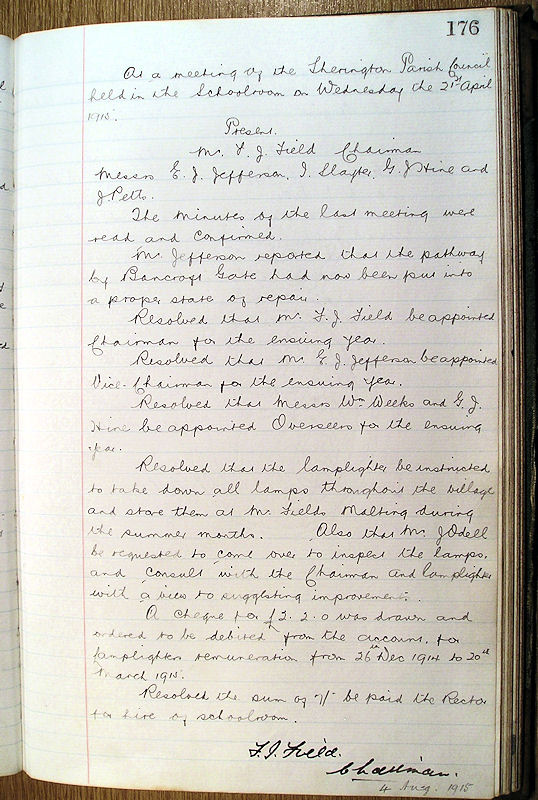 176
At a meeting of the Sherington Parish Council
held in the Schoolroom on Wednesday the 21st April
1915.
Present.
Mr. F. J. Field Chairman
Messrs E. J. Jefferson, I. Slayter, G. J Hine and
J Petts.
The Minutes of the last meeting were
read and confirmed.
Mr. Jefferson reported that the pathway
by Bancroft Gate had now been put into
a proper state of repair.
Resolved that Mr. F. J. Field be appointed
Chairman for the ensuing year.
Resolved that Mr E. J. Jefferson be appointed
Vice-Chairman for the ensuing year.
Resolved that Messrs Wm Weeks and G. J.
Hine be appointed Overseers for the ensuing
year.
Resolved that the lamplighter be instructed
to take down all lamps throughout the village
and store them at Mr. Fields Malting during
the summer months. Also that Mr. J Odell
be requested to come over to inspect the lamps,
and consult with the Chairman and lamplighter
with a view to suggesting improvements.
A cheque for £2. 2. 0 was drawn and
ordered to be debited from the account, for
lamplighters remuneration from 26th Dec 1914 to 20th
March 1915.
Resolved the sum of 7/- be paid the Rector
for hire of schoolroom.
F. J. Field.
Chairman.
4 Aug. 1915